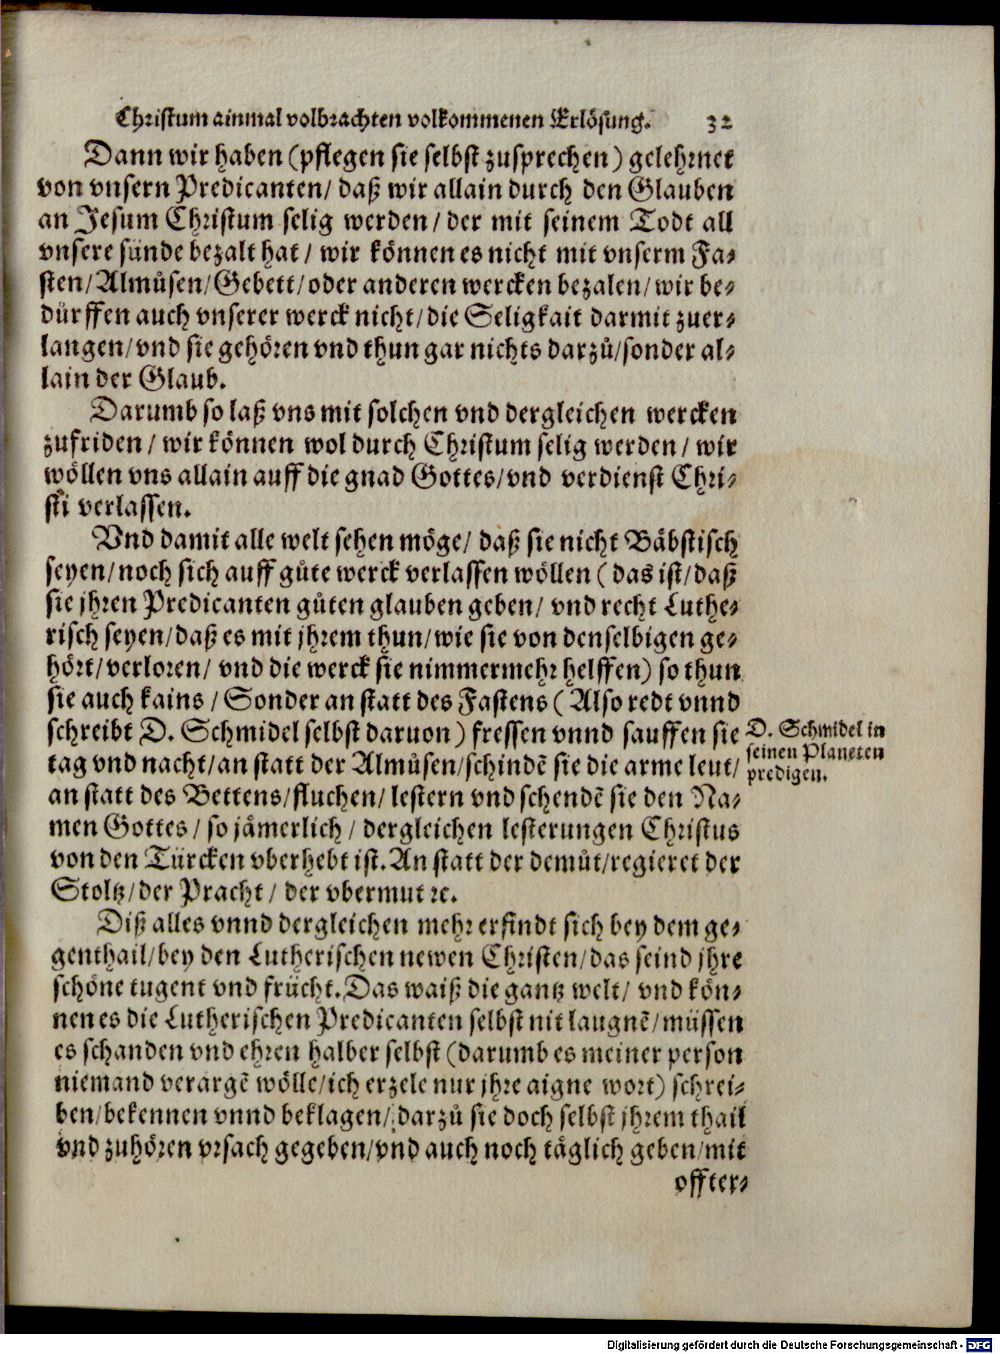 Christum ainmal volbrachten volkommenen Erlösung. 32
Dann wir haben (pflegen sie selbst zusprechen) gelehrnet
von vnsern Predicanten/ daß wir allain durch den Glauben
an Jesum Christum selig werden/ der mit seinem Todt all
vnsere sünde bezalt hat/ wir können es nicht mit vnserm Fa-
sten/ Almůsen/ Gebett/ oder anderen wercken bezalen/ wir be-
dürffen auch vnserer werck nicht/ die Seligkait darmit zuer-
langen/ vnd sie gehören vnd thun gar nichts darzů/ sonder al-
lain der Glaub.
Darumb so laß vns mit solchen vnd dergleichen wercken
zufriden/ wir können wol durch Christum selig werden/ wir
wöllen vns allain auff die gnad Gottes/ vnd verdienst Chri-
sti verlassen.
Vnd damit alle welt sehen möge/ daß sie nicht Bäbstisch
seyen/ noch sich auff gůte werck verlassen wöllen (das ist/ daß
sie jhren Predicanten gůten glauben geben/ vnd recht Luthe-
risch seyen/ daß es mit jhrem thun/ wie sie von denselbigen ge-
hört/ verloren/ vnd die werck sie nimmermehr helffen) so thun
sie auch kains/ Sonder an statt des Fastens (Also redt vnnd
schreibt D. Schmidel selbst daruon) fressen vnnd sauffen sie
tag vnd nacht/ an statt der Almůsen/ schindē sie die arme leut/
an statt des Bettens/ fluchen/ lestern vnd schendē sie den Na-
men Gottes/ so jämerlich/ dergleichen lesterungen Christus
von den Türcken vberhebt ist. An statt der demůt/ regieret der
Stoltz/ der Pracht/ der vbermut ꝛc.
D. Schmidel in
seinen Planeten
predigen.
Diß alles vnnd dergleichen mehr erfindt sich bey dem ge-
genthail/ bey den Lutherischen newen Christen/ das seind jhre
schöne tugent vnd frücht. Das waiß die gantz welt/ vnd kön-
nen es die Lutherischen Predicanten selbst nit laugnē/ müssen
es schanden vnd ehren halber selbst (darumb es meiner person
niemand verargē wölle/ ich erzele nur jhre aigne wort) schrei-
ben/ bekennen vnnd beklagen/ darzů sie doch selbst jhrem thail
vnd zuhören vrsach gegeben/ vnd auch noch täglich geben/ mit
offter-
Digitalisierung gefördert durch die Deutsche Forschungsgemeinschaft - DFG